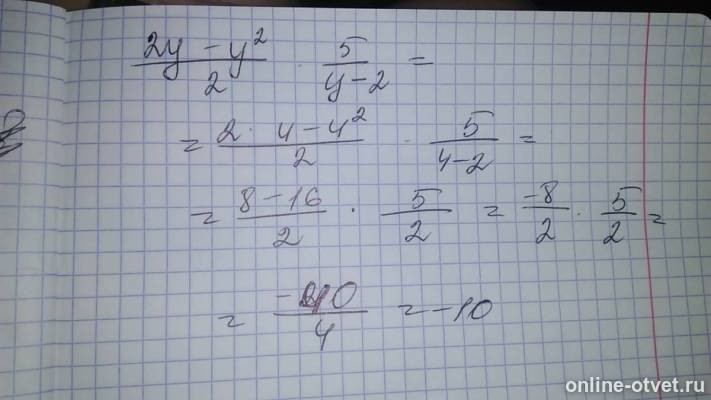 (2y - y²)/2 · 5/(y-2) =
= (2 · 4 - 4²)/2 · 5/(4-2) =
= (8 - 16)/2 · 5/2 = -8/2 · 5/2 =
= -40/4 = -10
online-otvet.ru